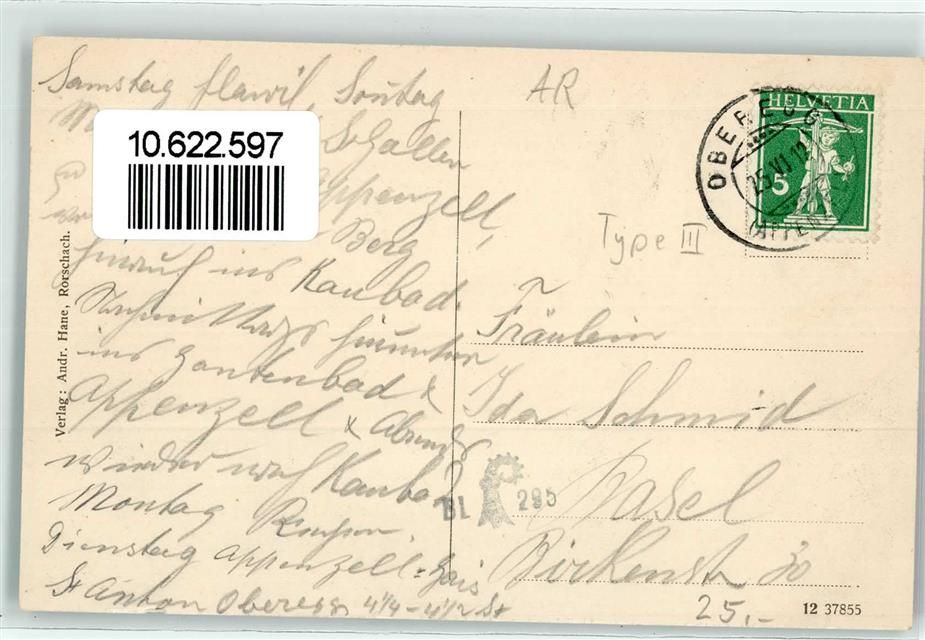 Samstag flawil, Sontag
10.622.597
St Gallen
Appenzell,
Berg
hinauf ins Kaubad.
Nachmittags hinunter
ins Gontenbad &
Appenzell & Abends
wieder nach Kaubad
Montag
Dienstag Appenzell = Gais
St Anton Oberegg 4 1/4 - 4 1/2 St
Verlag: Andr. Hane, Rorschach.
AR
HELVETIA
5
OBEREGG
25.VI.12
(APPENZ
Type III
Fräulein
Ida Schmid
Basel
Birkenstr 30
BL 295
25,-
12 37855